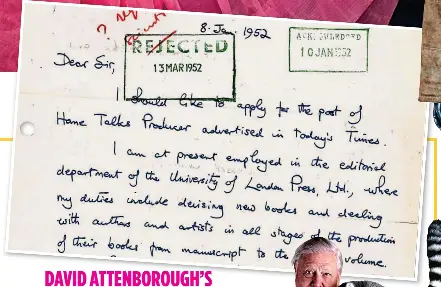 8. Jan. 1952
REJECTED
13 MAR 1952
10 JAN 1952
Dear Sir,
I should like to apply for the post of
Home Talks Producer advertised in today's Times.
I am at present employed in the editorial
department of the University of London Press, Ltd., where
my duties include devising new books and dealing
with authors and artists in all stages of the production
of their books from manuscript to the volume.
DAVID ATTENBOROUGH'S